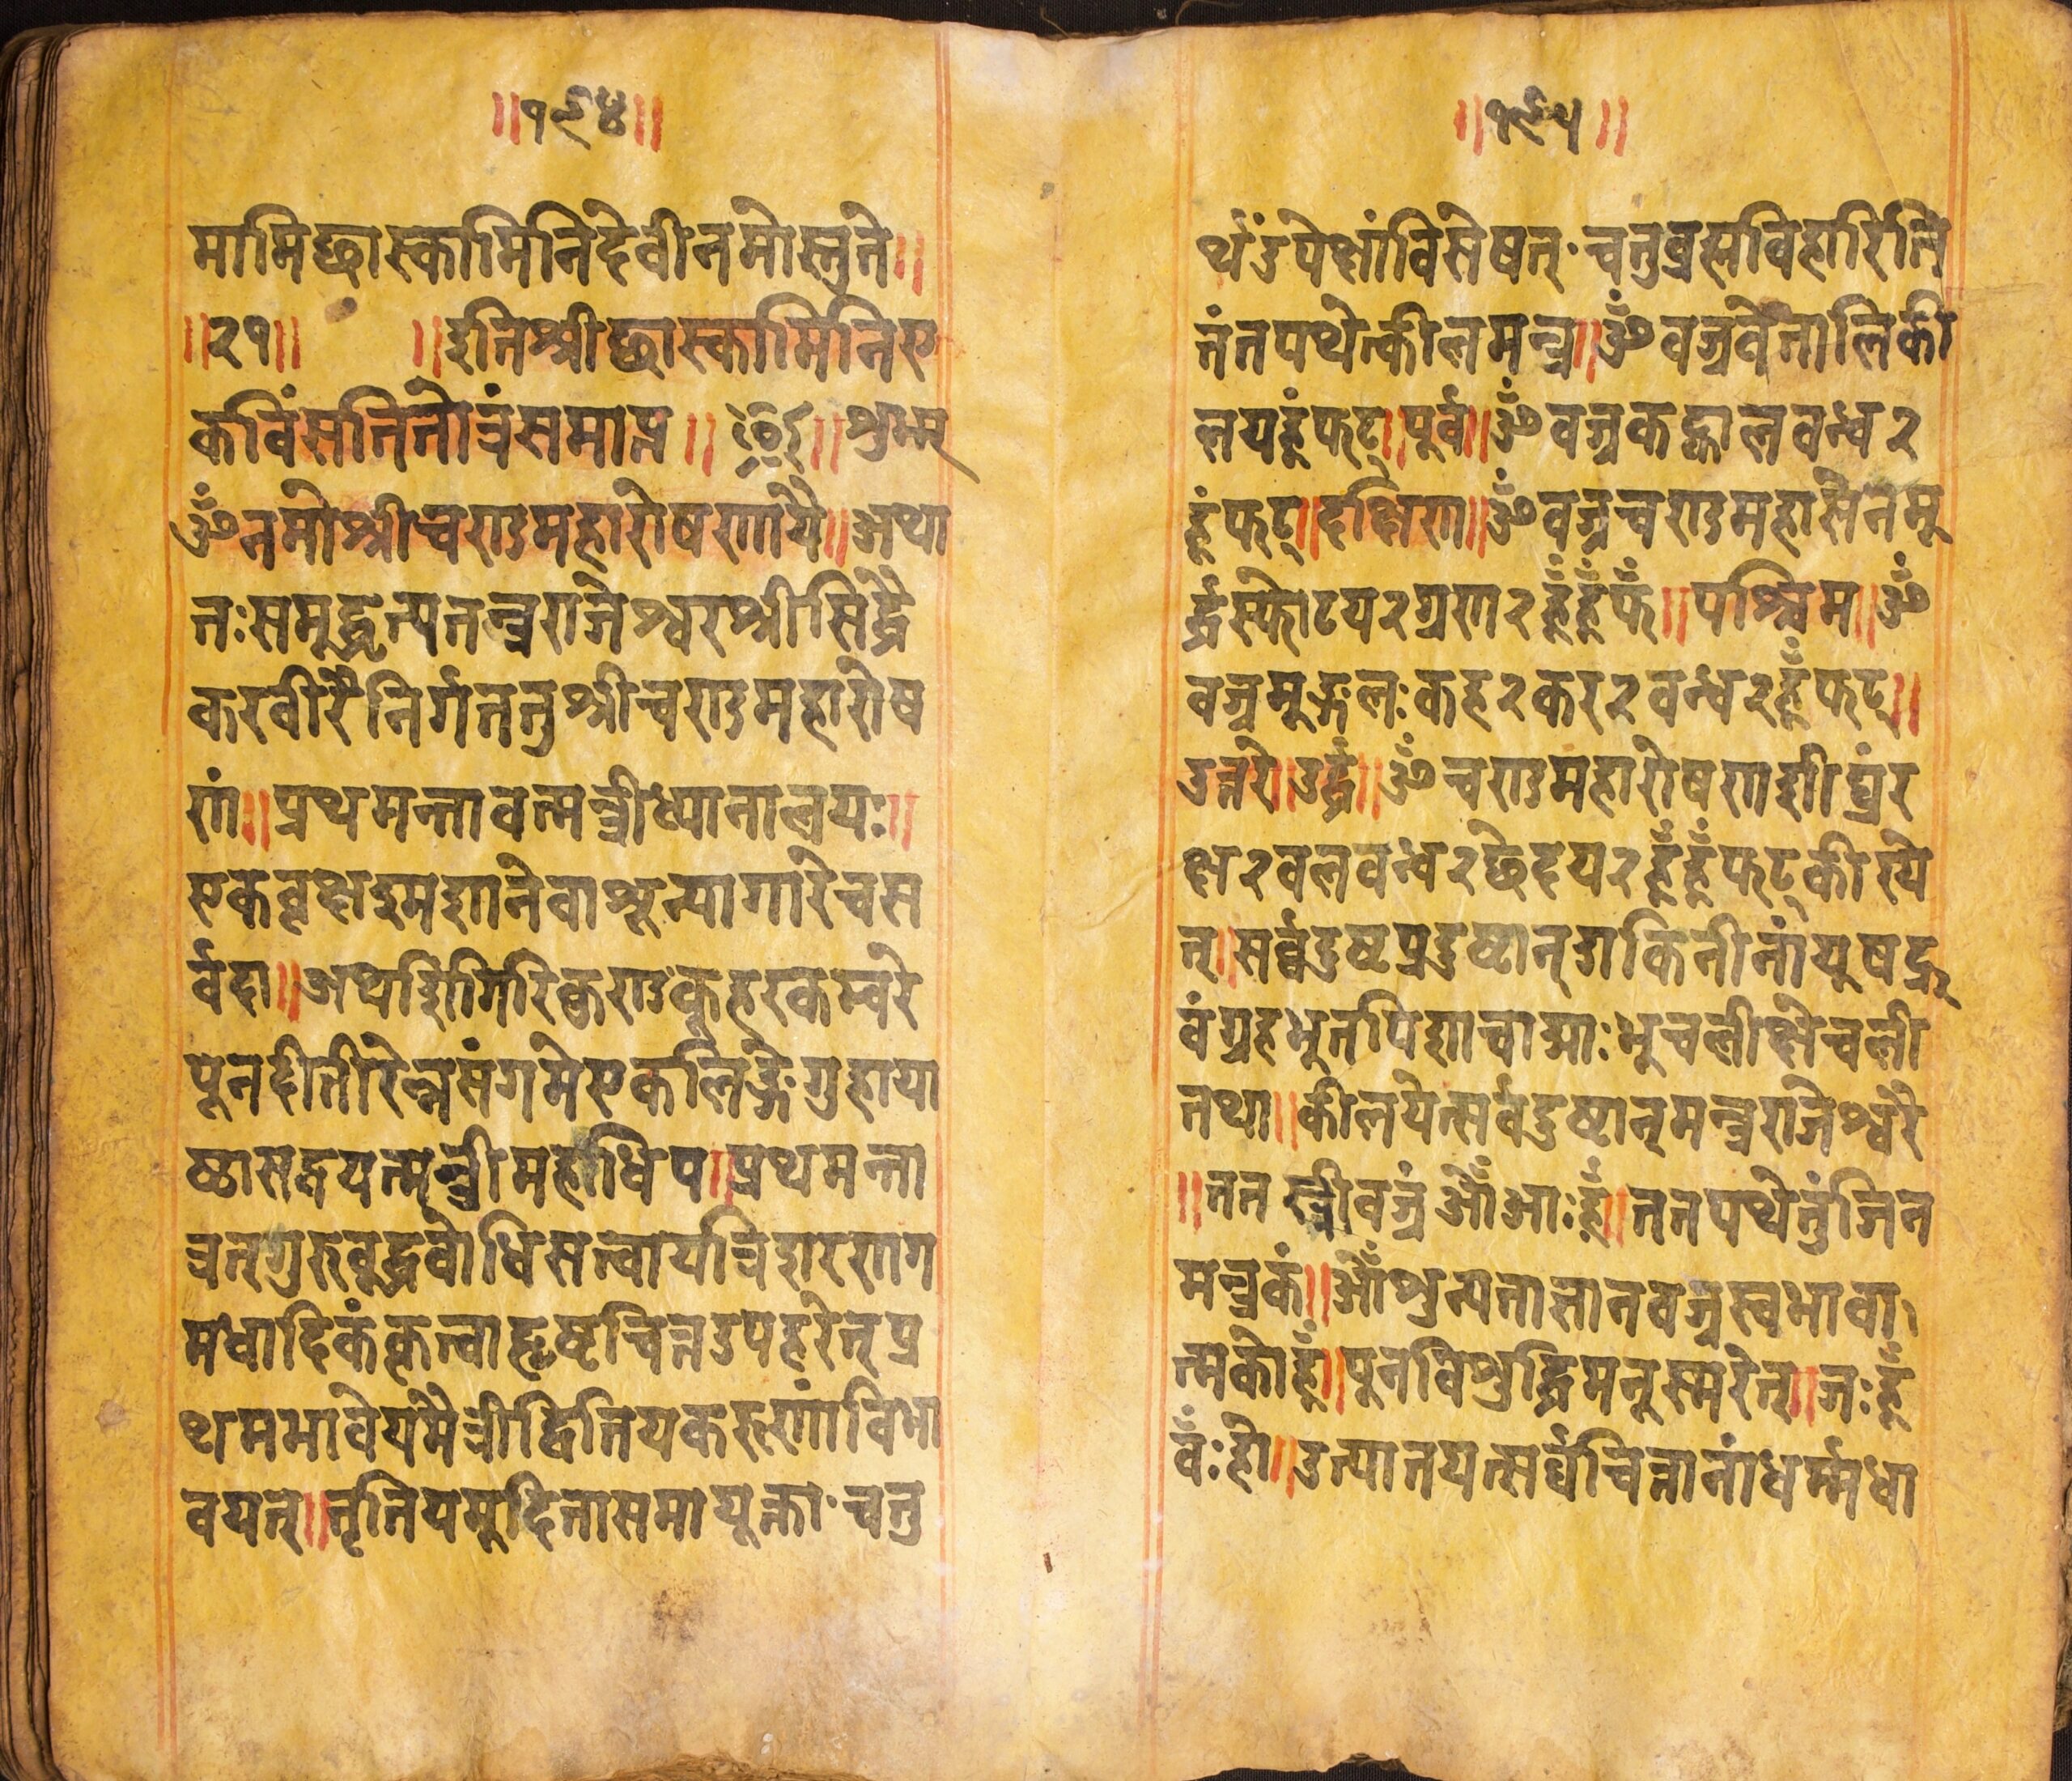 ॥१९४॥
मामि छास्कामिनिदेवीनमोस्तुते॥
॥२१॥ ॥इतिश्रीछास्कामिनिए
कविंसतितोत्रंसमाप्त॥ ॥शुभम्
ॐनमोश्रीचण्डमहारोषणायै॥अथा
तःसमुद्धृत्यतन्त्रराजेश्वरश्रीसिद्धै
करवीरैनिर्गतनुश्रीचण्डमहारोष
णं॥प्रथमन्तावत्मन्त्रीध्यानालयः॥
एकवृक्षश्मशानेवाशून्यागारेचस
र्वदा॥अथशिगिरिकुण्डकूहरकम्वरे
पूनदीतीरेत्नसंगमेएकलिङ्गेगुहाया
ष्ठासद्मयन्मन्त्रीमहाधिप॥प्रथमन्ता
त्रन्गुरुवुद्धवोधिसत्वायत्रिशरणग
मधादिकंकृत्वाहृष्टचित्तउपहरेत्प्र
थमभावेयमैत्रीद्वितियकरुणांविभा
वयत्॥तृतियमूदितासमायूक्ता·चतु
॥१९५॥
र्थंउपेक्षांविसेषत्·चतुव्रह्मविहारिति
तंतपथेत्कीलमन्त्र॥ॐवज्रवेतालिकी
लयहूंफट्॥पूर्व॥ॐवज्रकङ्कालवन्ध२
हूंफट्॥दक्षिण॥ॐवज्रचण्डमहासेनमू
र्द्धस्फोटय२ग्रण२हूँहूँफँ॥पश्चिम॥ॐ
वज्रमूङ्गलःकह२कर२वन्ध२हूँफट्॥
उत्तरे॥उर्द्धं॥ॐचण्डमहारोषणशीघ्रंर
क्ष२वलवन्ध२छेदय२हूँहूँफट्कीलये
त्॥सर्व्वदुष्टप्रदुष्टान्डाकिनीनांयूषद्रू
वंग्रहभुतपिशाचाद्याःभुचलीक्षेचली
तथा॥कीलयेत्सर्वदुष्टान्मन्त्रराजेश्वरै
॥ततस्त्रीवज्रंओँआःहूँ॥ततपथेनुंजिन
मन्त्रकं॥ओँशुन्यताज्ञानवज्रस्वभावा
त्मकोहूँ॥पूनविशुद्धिमनुस्मरेत्॥जःहूँ
वँःहो॥उत्पातयत्सर्वचित्तानांधर्म्मधा